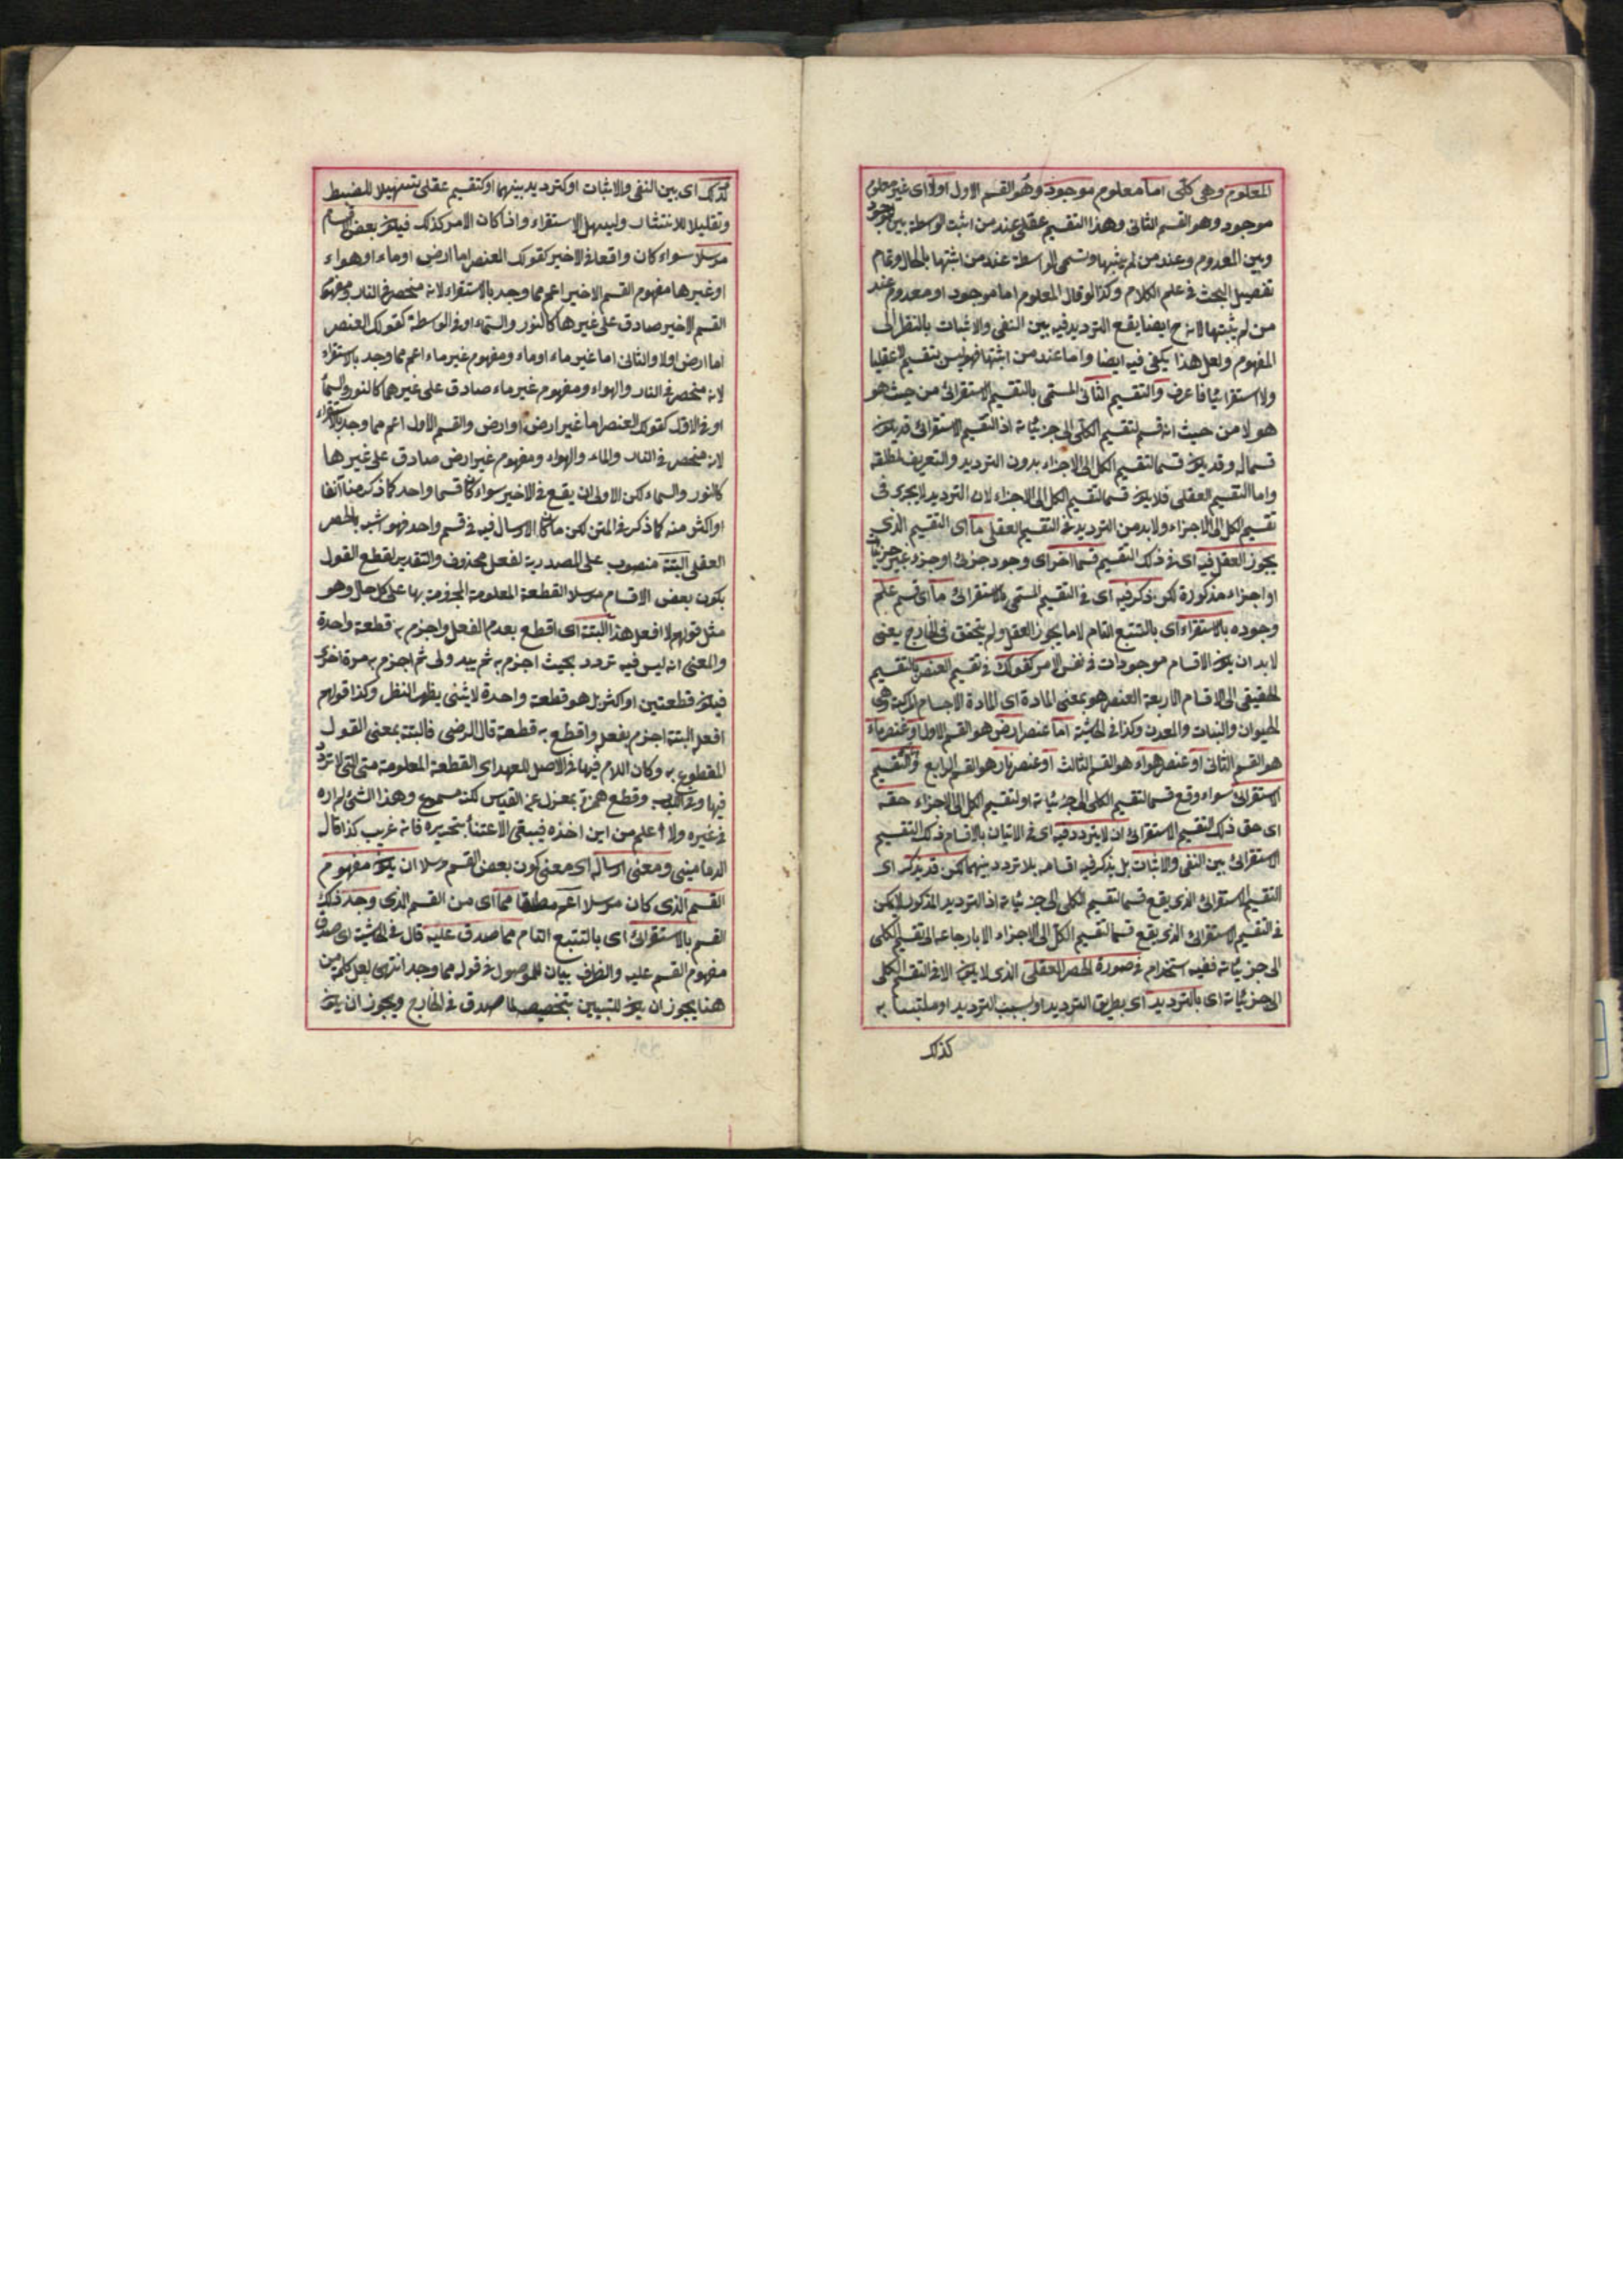 المعلوم وهي كلى اما معلوم موجود وهو القسم الاول اولا اى غير معلوم
موجود وهو القسم الثانى وهذا التقسيم عقلى عند من اثبت الوسطة بين الموجود
وبين المعدوم وعند من لم يثبتها وتسمى الواسطة عند من اثبتها بالحال وتمام
تفصيل البحث فى علم الكلام وكذا لو قال المعلوم اما موجود او معدوم عند
من لم يثبتها لانه ح ايضا يقع الترديد فيه بين النفى والاثبات بالنظر الى
المفهوم ولعل هذا يكفى فيه ايضا واما عند من اثبتها فهو ليس بتقسيم لا عقليا
ولا استقرائيا فاعرف والتقسيم الثانى المسمى بالتقسيم الاستقرائى من حيث هو
هو لا من حيث انه قسم لتقسيم الكلى الى جزئياته اذ التقسيم الاستقرائى قد يكون
قسما له وقد يكون قسما لتقسيم الكل الى الاجزاء بدون الترديد والتعريف لمطلقه
واما التقسيم العقلى فلا يكون قسما لتقسيم الكل الى الاجزاء لان الترديد لا يجرى فى
تقسيم الكل الى الاجزاء ولا بد من الترديد فى التقسيم العقلى ما اى التقسيم الذى
يجوز العقل فيه اى فى ذلك التقسيم قسما اخر اى وجود جزئى او جزء غير جزئيات
او اجزاء مذكورة لكن ذكر فيه اى فى التقسيم المسمى بالاستقرائى ما اى قسم علم
وجوده بالاستقراء اى بالتتبع التام لا ما يجوز العقل ولم يتحقق فى الخارج يعنى
لا بد ان يكون الاقسام موجودات فى نفس الامر كقولك فى تقسيم العنصر بالتقسيم
الحقيقى الى الاقسام الاربعة العنصر هو بمعنى المادة اى المادة الاجسام المركبة وهى
الحيوان والنبات والمعدن وكذا فى الحاشية اما عنصر ارض هو القسم الاول او عنصر ماء
هو القسم الثانى او عنصر هواء هو القسم الثالث او عنصر نار هو القسم الرابع والتقسيم
الاستقرائى سواء وقع قسما لتقسيم الكلى الى جزئياته او لتقسيم الكل الى الاجزاء حقه
اى حق ذلك التقسيم الاستقرائى ان لا يتردد فيه اى فى الاتيان بالاقسام ذلك التقسيم
الاستقرائى بين النفى والاثبات بل يذكر فيه اقسامه بلا تردد بينهما لكن قد يذكر اى
التقسيم الاستقرائى الذى يقع قسما لتقسيم الكلى الى جزئياته اذ الترديد المذكور لا يمكن
فى التقسيم الاستقرائى الذى يقع قسما لتقسيم الكل الى الاجزاء الا بارجاعه الى تقسيم الكلى
الى جزئياته ففيه استخدام فى صورة الحصر العقلى الذى لا يكون الا فى التقسيم الكلى
الى جزئياته اى بالترديد اى بطريق الترديد او بسبب الترديد او ملتبسا به
كذلك
كذلك اى بين النفى والاثبات او كترديد بينهما او كتقسيم عقلى تسهيلا للضبط
وتقليلا للانتشار وليسهل الاستقراء واذا كان الامر كذلك فيكون بعض اقسام
مرسلا سواء كان واقعا فى الاخير كقولك العنصر اما ارض او ماء او هواء
او غيرها مفهوم القسم الاخير اعم مما وجد بالاستقراء لانه منحصر فى النار ومفهوم
القسم الاخير صادق على غيرها كالنور والسماء او فى الوسطة كقولك العنصر
اما ارض اولا والثانى اما غير ماء او ماء ومفهوم غير ماء اعم مما وجد بالاستقراء
لانه منحصر فى النار والهواء ومفهوم غير ماء صادق على غيرهما كالنور والسماء
او فى الاول كقولك العنصر اما غير ارض او ارض والقسم الاول اعم مما وجد بالاستقراء
لانه منحصر فى النار والماء والهواء ومفهوم غير ارض صادق على غيرها
كالنور والسماء لكن الاولى ان يقع فى الاخير سواء كان قسما واحد كما ذكر منا آنفا
او اكثر منه كما ذكر فى المتن لكن ما كان الارسال فيه فى قسم واحد فهو اشبه بالحصر
العقلى البتة منصوب على المصدرية لفعل محذوف والتقدير لقطع القول
بكون بعض الاقسام مرسلا القطعة المعلومة المجزومة بها على كل حال وهو
مثل قولهم لا افعل هذا البتة اى اقطع بعدم الفعل واجزم به قطعة واحدة
والمعنى انه ليس فيه تردد بحيث اجزم به ثم يبدو لى ثم اجزم به مرة اخرى
فيكون قطعتين او اكثر بل هو قطعة واحدة لا يثنى يظهر النظر وكذا قولهم
افعله البتة اجزم بفعله واقطع به قطعة قال الرضى فالبتة بمعنى القول
المقطوع به وكان اللام فيها فى الاصل للعهد اى القطعة المعلومة منى التى لا تردد
فيها وقطع همزته بمعزل عن القياس لكنه مسموع وهذا الشئ لم اره
فى غيره ولا اعلم من اين اخذه فيبقى الاعتناء بتحريره فانه غريب كذا قال
الدمامينى ومعنى ارساله اى معنى كون بعض القسم مرسلا ان يكون مفهوم
القسم الذى كان مرسلا اعم مطلقا مما اى من القسم الذى وجد ذلك
القسم بالاستقرائى اى بالتتبع التام مما صدق عليه قال فى الحاشية اى صدق
مفهوم القسم عليه والظرف بيان للموصول فى قوله مما وجد انتهى لعل كلمة من
هنا يجوز ان يكون للتبيين بتخصيص لما صدق فى الخارج ويجوز ان يكون